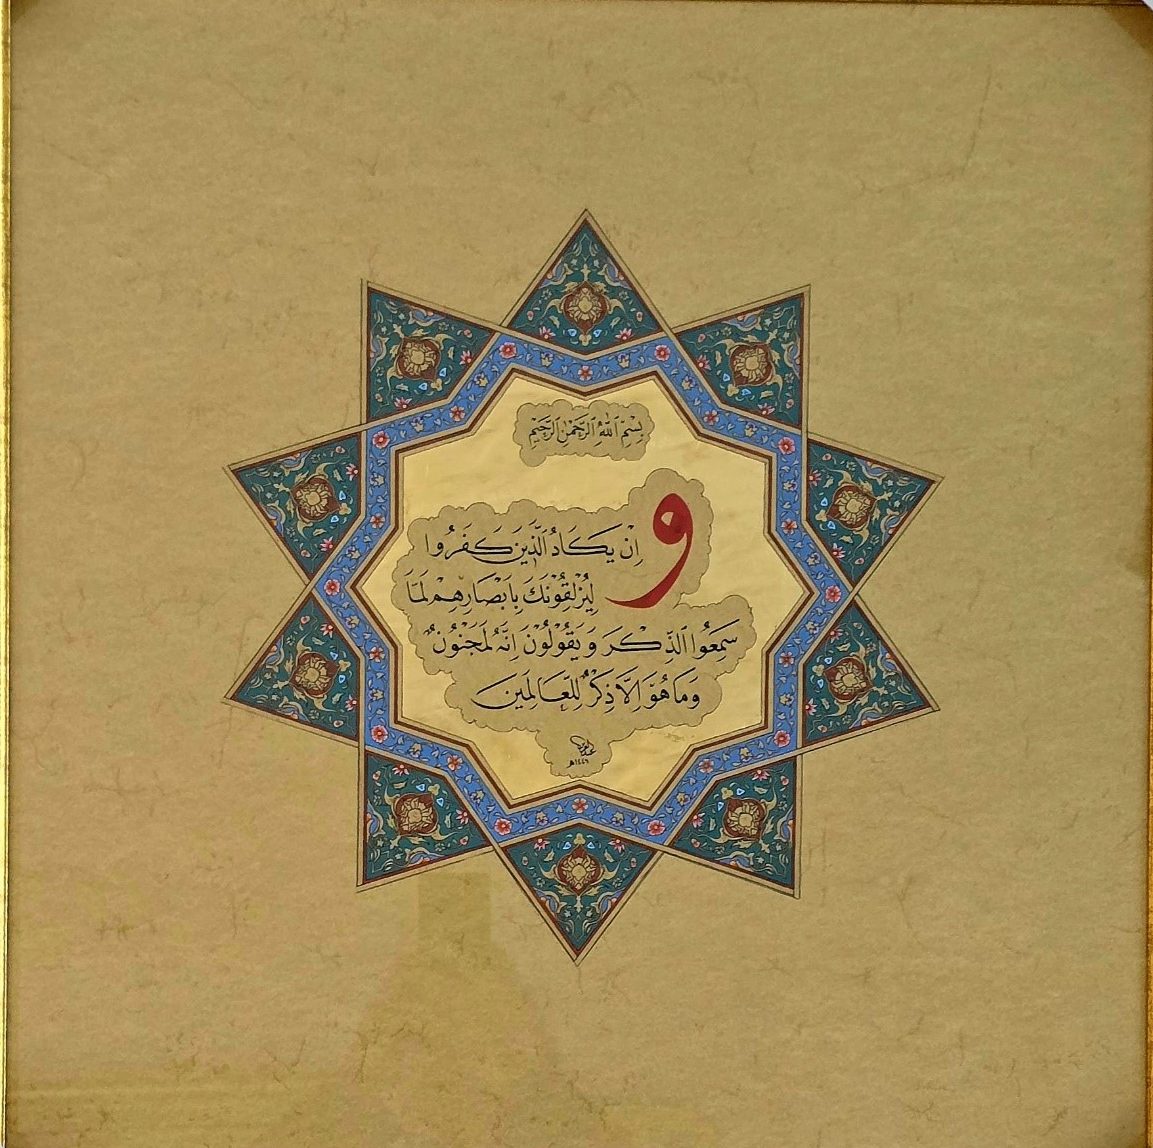 بِسْمِ اللّٰهِ الرَّحْمٰنِ الرَّحِيْمِ
وَ اِنْ يَكَادُ الَّذِيْنَ كَفَرُوا
لَيُزْلِقُوْنَكَ بِاَبْصَارِهِمْ لَمَّا
سَمِعُوا الذِّكْرَ وَ يَقُوْلُوْنَ اِنَّهُ لَمَجْنُوْنٌ
وَمَا هُوَ اِلَّا ذِكْرٌ لِلْعَالَمِيْنَ
١٤٤٦هـ